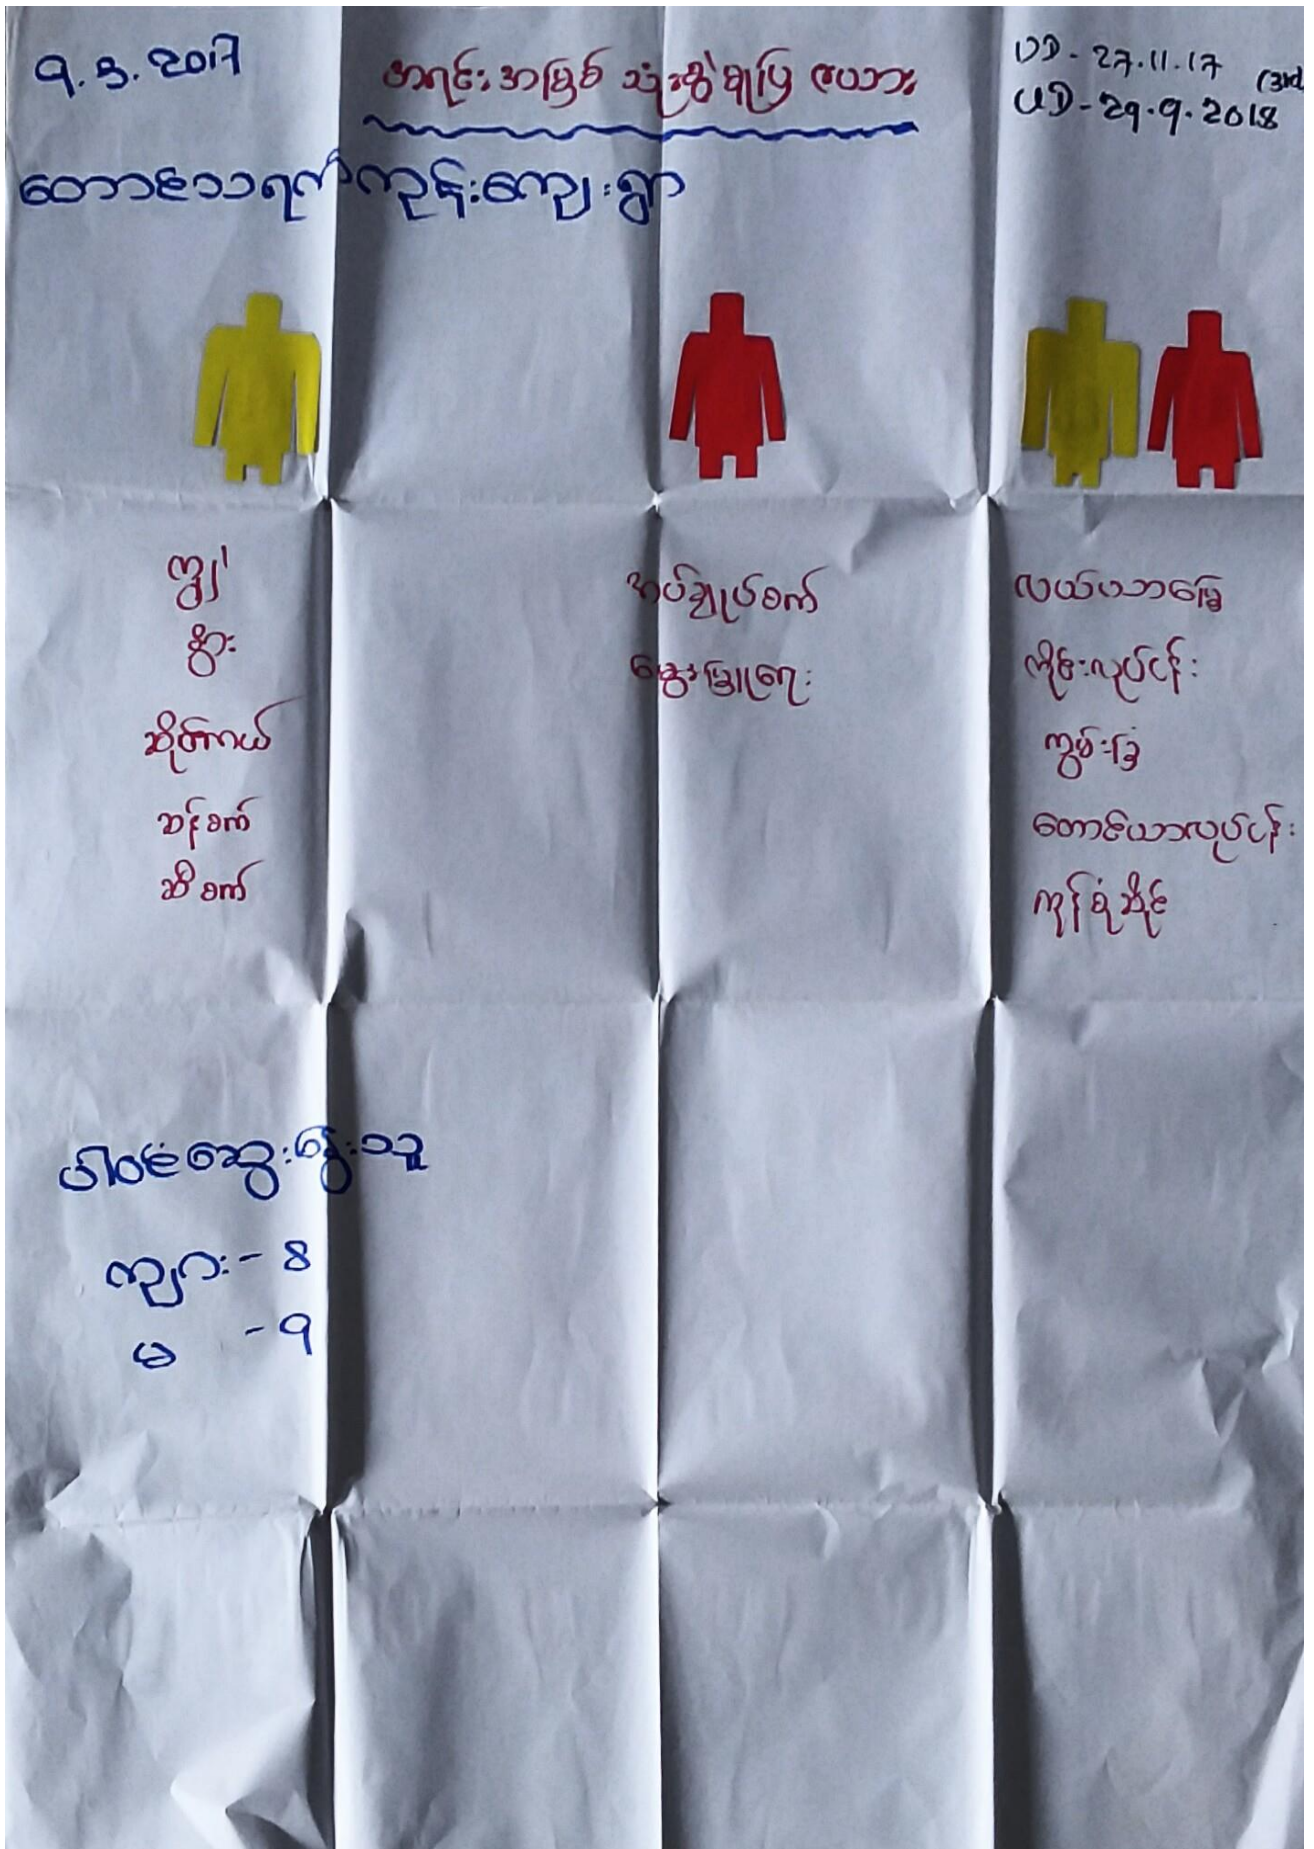 9.3.2017
အရင်းအမြစ် သုံးစွဲမှုပြ ဇယား
UD - 27.11.17
(3rd
UD - 29.9.2018
တောင်သရက်ကုန်းကျေးရွာ
ကျွဲ
နွား
ဆိုင်ကယ်
ဆန်စက်
ဆီစက်
အပ်ချုပ်စက်
မွေးမြူရေး
လယ်ယာမြေ
ကိုင်းလုပ်ငန်း
ကွမ်းခြံ
တောင်ယာလုပ်ငန်း
ကုန်စုံဆိုင်
ပါဝင်ဆွေးနွေးသူ
ကျား - 8
မ - 9